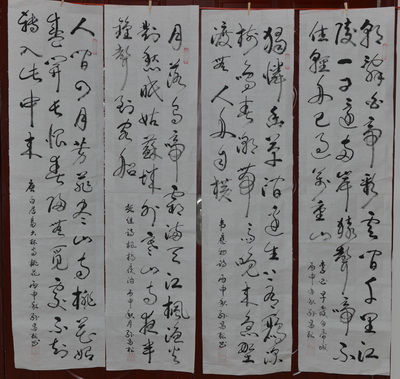 朝辭白帝彩雲間千里江
陵一日還兩岸猿聲啼不
住輕舟已過萬重山
李白早發白帝城
丙申秋
獨憐幽草澗邊生上有黃鸝深
樹鳴春潮帶雨晚來急野
渡無人舟自橫
韋應物詩丙申秋
月落烏啼霜滿天江楓漁火
對愁眠姑蘇城外寒山寺夜半
鐘聲到客船
張繼詩楓橋夜泊丙申秋月
人間四月芳菲盡山寺桃花始
盛開長恨春歸無覓處不知
轉入此中來
唐白居易大林寺桃花丙申秋